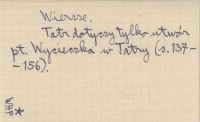 Wiersze.
Tatr dotyczy tylko utwór
pt. Wycieczka w Tatry (s. 137-
-156).
WHP
*